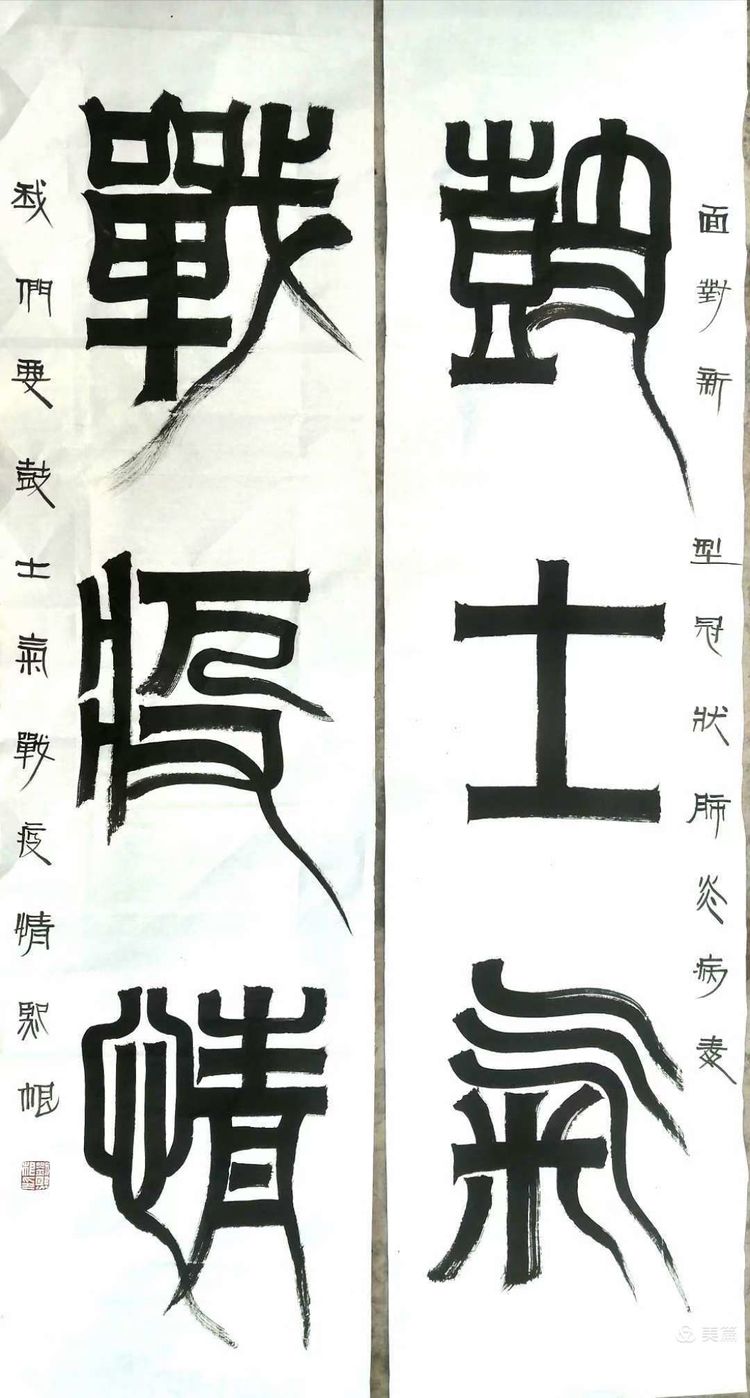 面對新型冠狀肺炎病毒
鼓士氣
戰疫情
我們要鼓士氣戰疫情
美篇